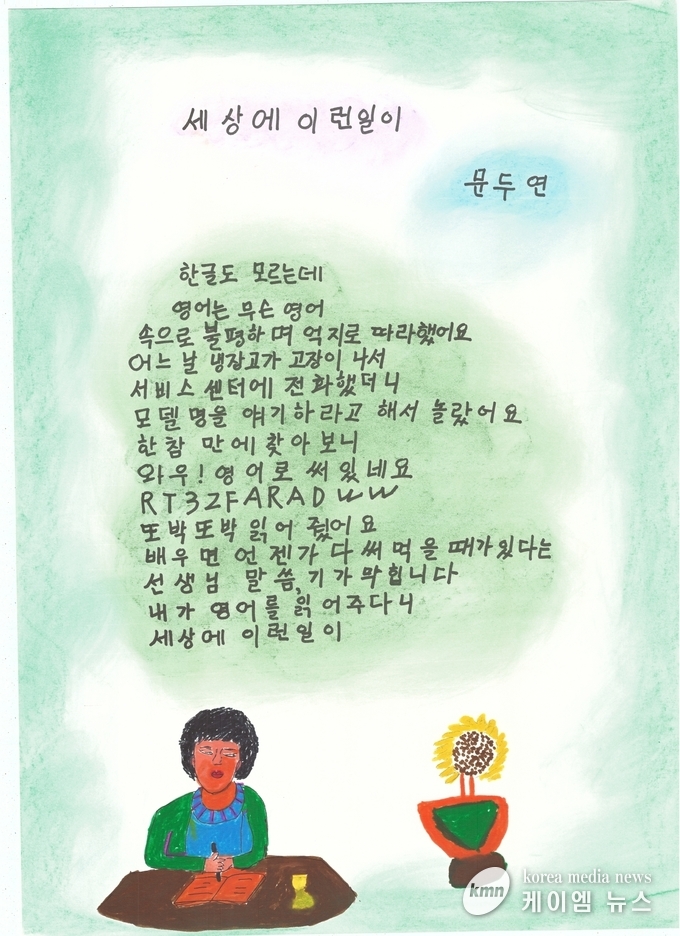 세상에 이런일이
문두연
한글도 모르는데
영어는 무슨 영어
속으로 불평하며 억지로 따라했어요
어느 날 냉장고가 고장이 나서
서비스 센터에 전화했더니
모델명을 얘기하라고 해서 놀랐어요
한참 만에 찾아보니
와우! 영어로 써 있네요
RT32FARADWW
또박또박 읽어 줬어요
배우면 언젠가 다 써먹을 때가 있다는
선생님 말씀, 기가 막힙니다
내가 영어를 읽어주다니
세상에 이런일이
kmn
korea media news
케이엠 뉴스